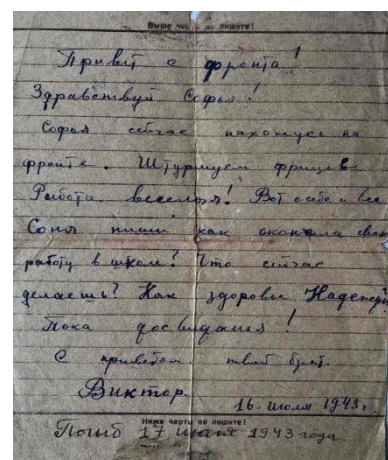 Выше черты не пишите!
Привит с фронта!
Здравствуй Софья!
Софья сейчас нахожусь на
фронте. Штурмуем фрицев
Работа веселая! Вот о себе и все
Соня пиши как окончила свою
работу в школе? Что сейчас
делаешь? Как здоровье Надежды
Пока досвидания!
С приветом твой брат.
Виктор.
16. июля 1943г.
Ниже черты не пишите!
Погиб 17 июля 1943 года.